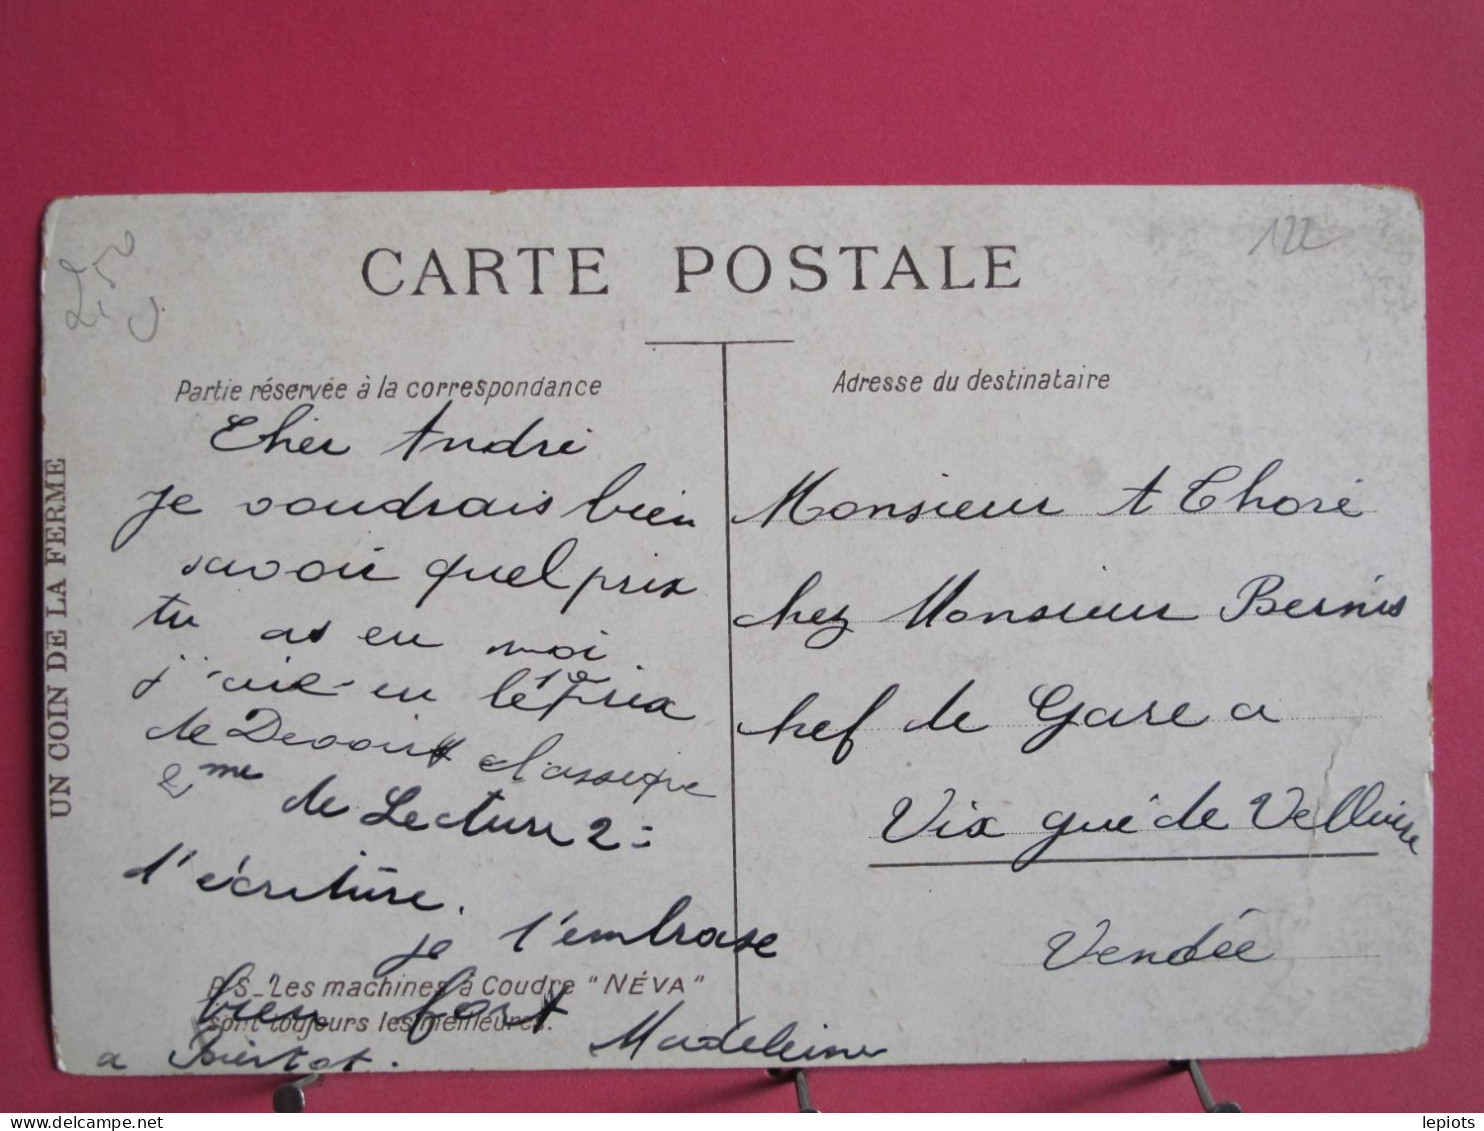 2,50
122
CARTE POSTALE
Partie réservée à la correspondance
Cher André
je voudrais bien
savoir quel prix
tu as eu moi
j'aie eu le 1e prix
de Devoirs classique
2me de Lecture 2=
l'écriture.
je t'embrase
bien fort
Madeleine
a Bientot.
P.S_Les machines à Coudre "NÉVA"
sont toujours les meilleures.
UN COIN DE LA FERME
Adresse du destinataire
Monsieur A Thoré
chez Monsieur Bernis
chef de Gare a
Vix gué de Velluire
Vendée
lepiots
delcampe.net